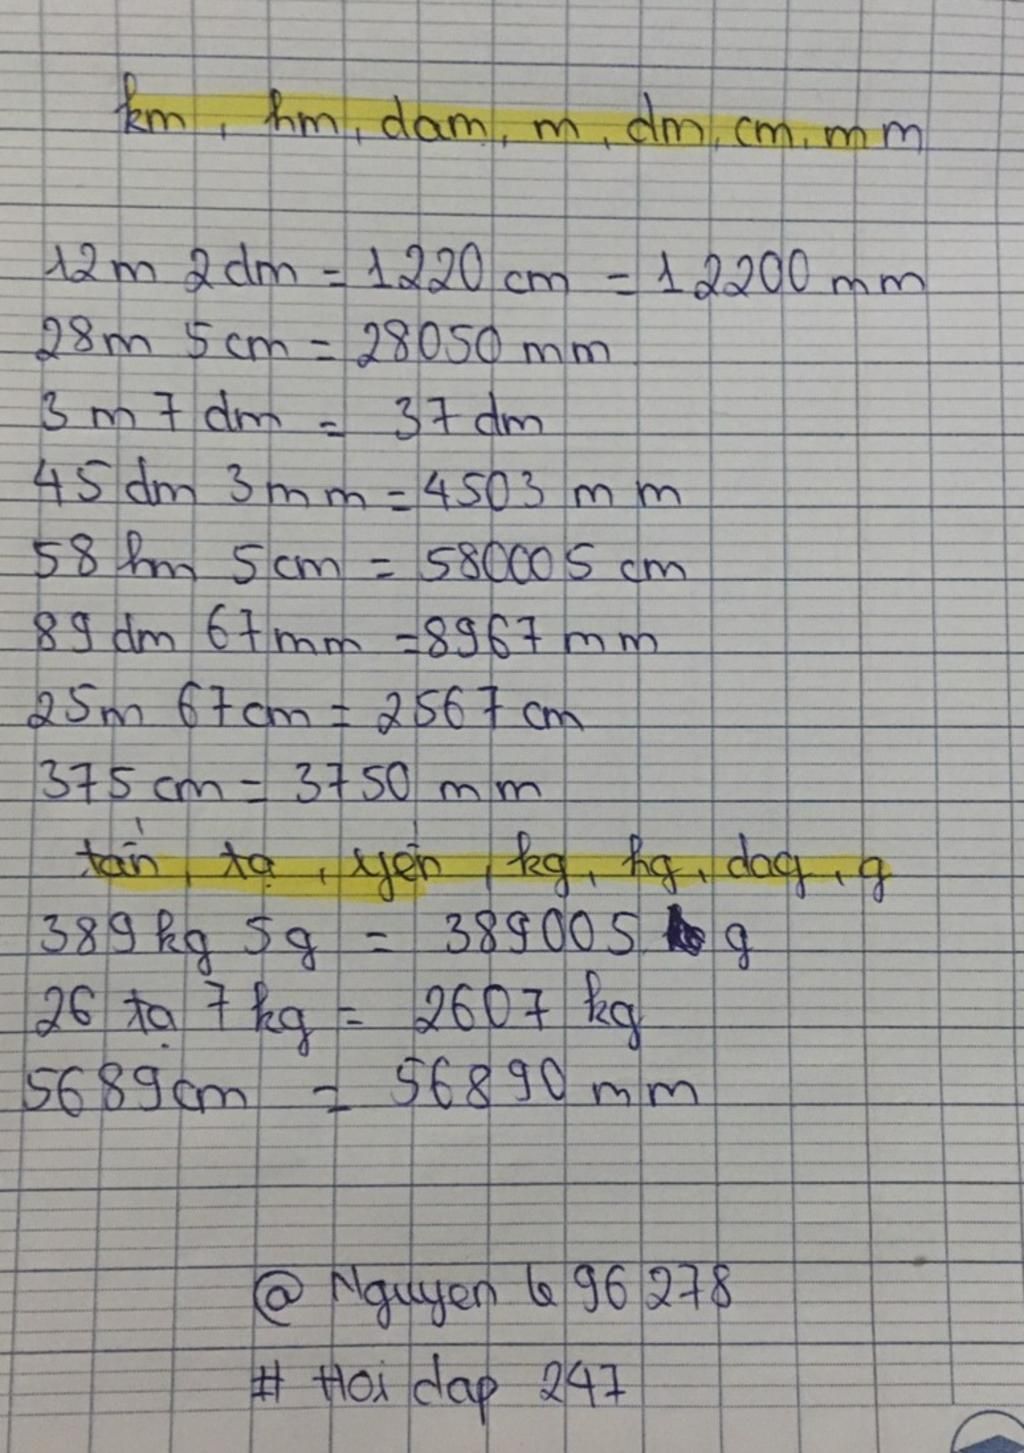 km, hm, dam, m, dm, cm, mm
12m 2dm = 1220 cm = 12200 mm
28m 5cm = 28050 mm
3m 7dm = 37 dm
45 dm 3mm = 4503 mm
58 hm 5cm = 580005 cm
89 dm 67mm = 8967 mm
25m 67cm = 2567 cm
375 cm = 3750 mm
tấn, tạ, yến, kg, hg, dag, g
389kg 5g = 389005 g
26 tạ 7kg = 2607 kg
5689cm = 56890 mm
@ Nguyen le 96 278
# Hoi dap 247